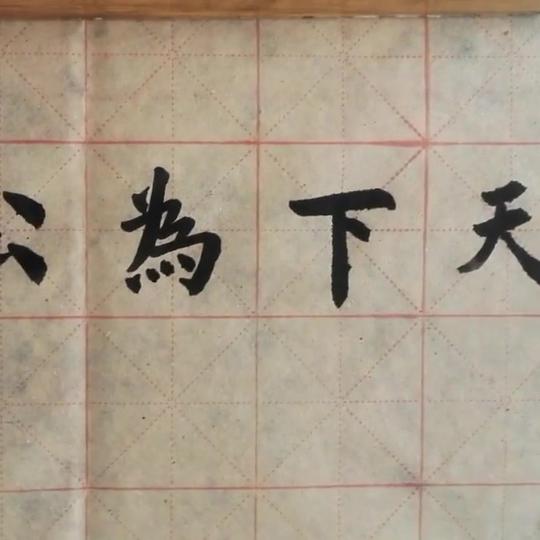 天下為公